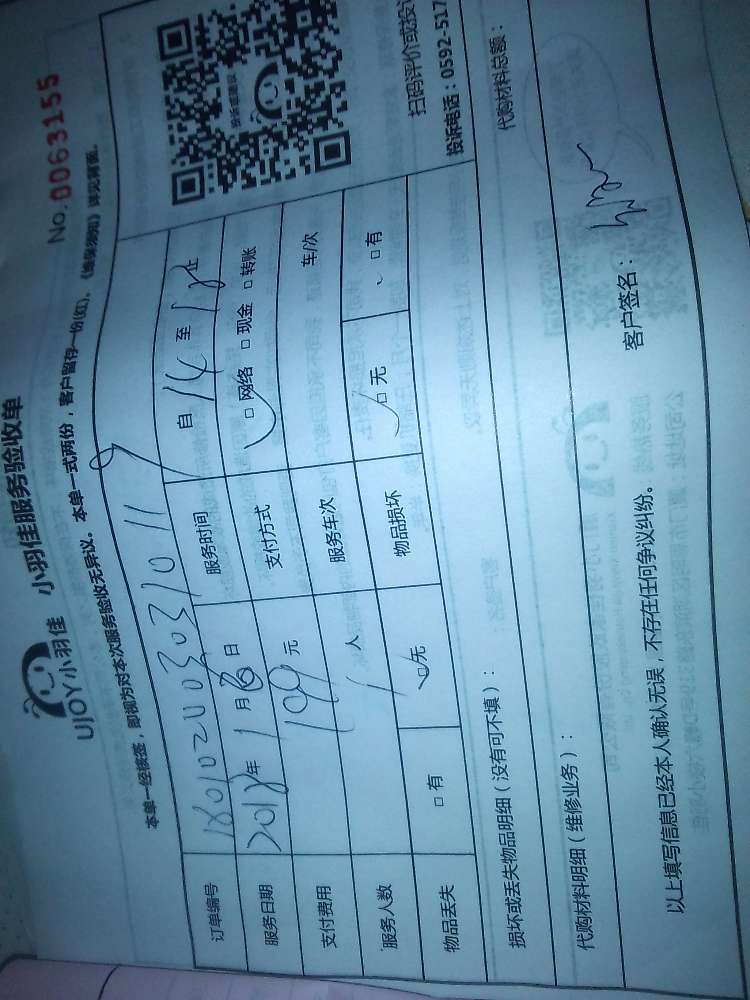 UJOY小羽佳 小羽佳服务验收单
No. 0063155
本单一经核签，即视为对本次服务验收无异议。本单一式两份，客户留存一份(红)。《维保须知》详见背面。
订单编号
服务日期 2018年1月6日 服务时间 自14至18止
支付费用 199元 支付方式 □网络 □现金 □转账
服务人数 1人 服务车次 车/次
物品丢失 □有 □无 物品损坏 □无 □有
投诉或建议
扫码评价或投
投诉电话：0592-517
损坏或丢失物品明细（没有可不填）：
代购材料明细（维修业务）： 代购材料总额：
以上填写信息已经本人确认无误，不存在任何争议纠纷。 客户签名：